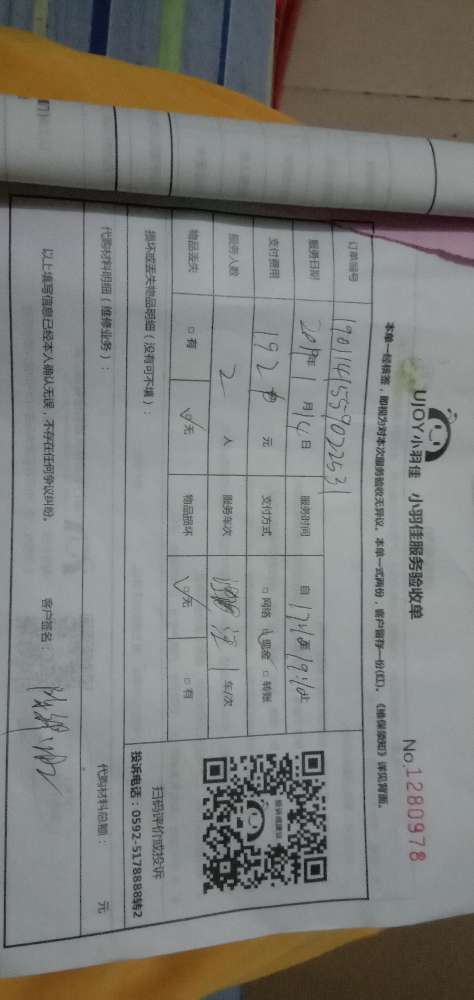 UJOY小羽佳 小羽佳服务验收单
No.1280978
本单一经核签，即视为对本次服务验收无异议。本单一式两份，客户留存一份(红)。《维保须知》详见背面。
订单编号
服务日期 2019年 1 月 14 日 服务时间 自 17:10至 19:10止
支付费用 192 元 支付方式 □网络 ☑现金 □转账
服务人数 2 人 服务车次 车/次
物品丢失 □有 ☑无 物品损坏 ☑无 □有
损坏或丢失物品明细（没有可不填）：
扫码评价或投诉
投诉电话：0592-5178888转2
代购材料明细（维修业务）： 代购材料总额： 元
以上填写信息已经本人确认无误，不存在任何争议纠纷。 客户签名：